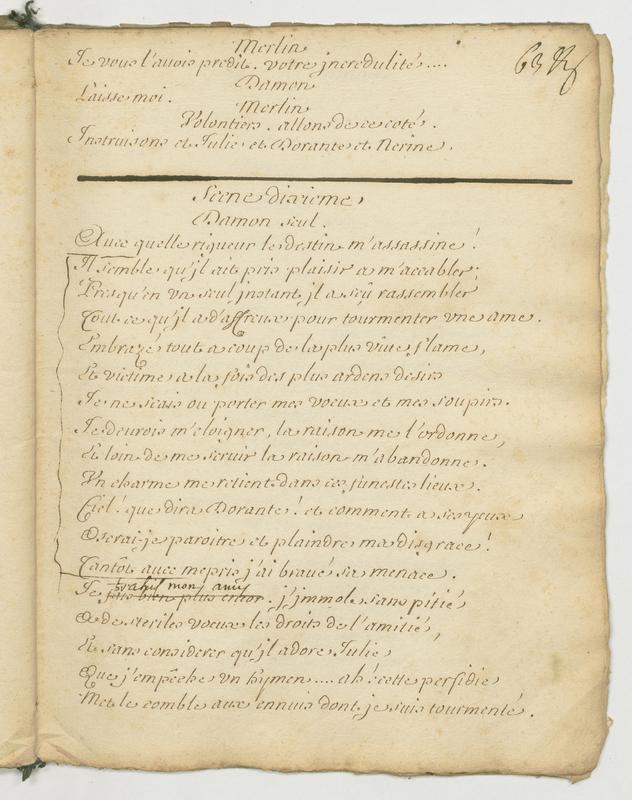 Merlin
Je vous l'avois predit. votre jncredulité....
Damon
Laisse moi.
Merlin
Volontiers. allons de ce coté.
Instruisons et Julie et Dorante et Nerine.
Scene dixieme
Damon seul.
Avec quelle rigueur le destin m'assassine!
Il semble qu'jl ait pris plaisir a m'accabler;
Presqu'en un seul jnstant jl a sçû rassembler
Tout ce qu'jl a d'affreux pour tourmenter une ame.
Embrazé tout a coup de la plus vive flame,
Et victime a la fois des plus ardens desirs
Je ne scais ou porter mes voeux et mes soupirs.
Je devrois m'eloigner, la raison me l'ordonne,
Et loin de me servir la raison m'abandonne.
Un charme me retient dans ces funestes lieux.
Ciel! que dira Dorante! et comment a ses yeux
Oserai-je paroitre et plaindre ma disgrace!
Tantôt avec mepris j'ai bravé sa menace.
trahis mon amy
Je fais bien plus encor. j'jmmole sans pitié
A de steriles voeux les droits de l'amitié,
Et sans considerer qu'jl adore Julie
Que j'empêche un hymen.... ah! cette perfidie
Met le comble aux ennuis dont je suis tourmenté.